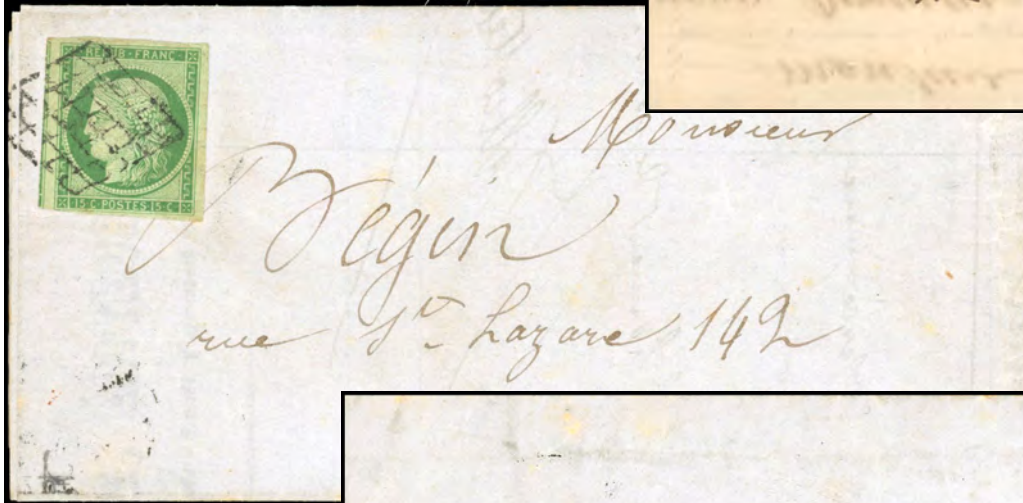 REPUB · FRANC
15 C · POSTES · 15 C
Monsieur
Bégin
rue St Lazare 142